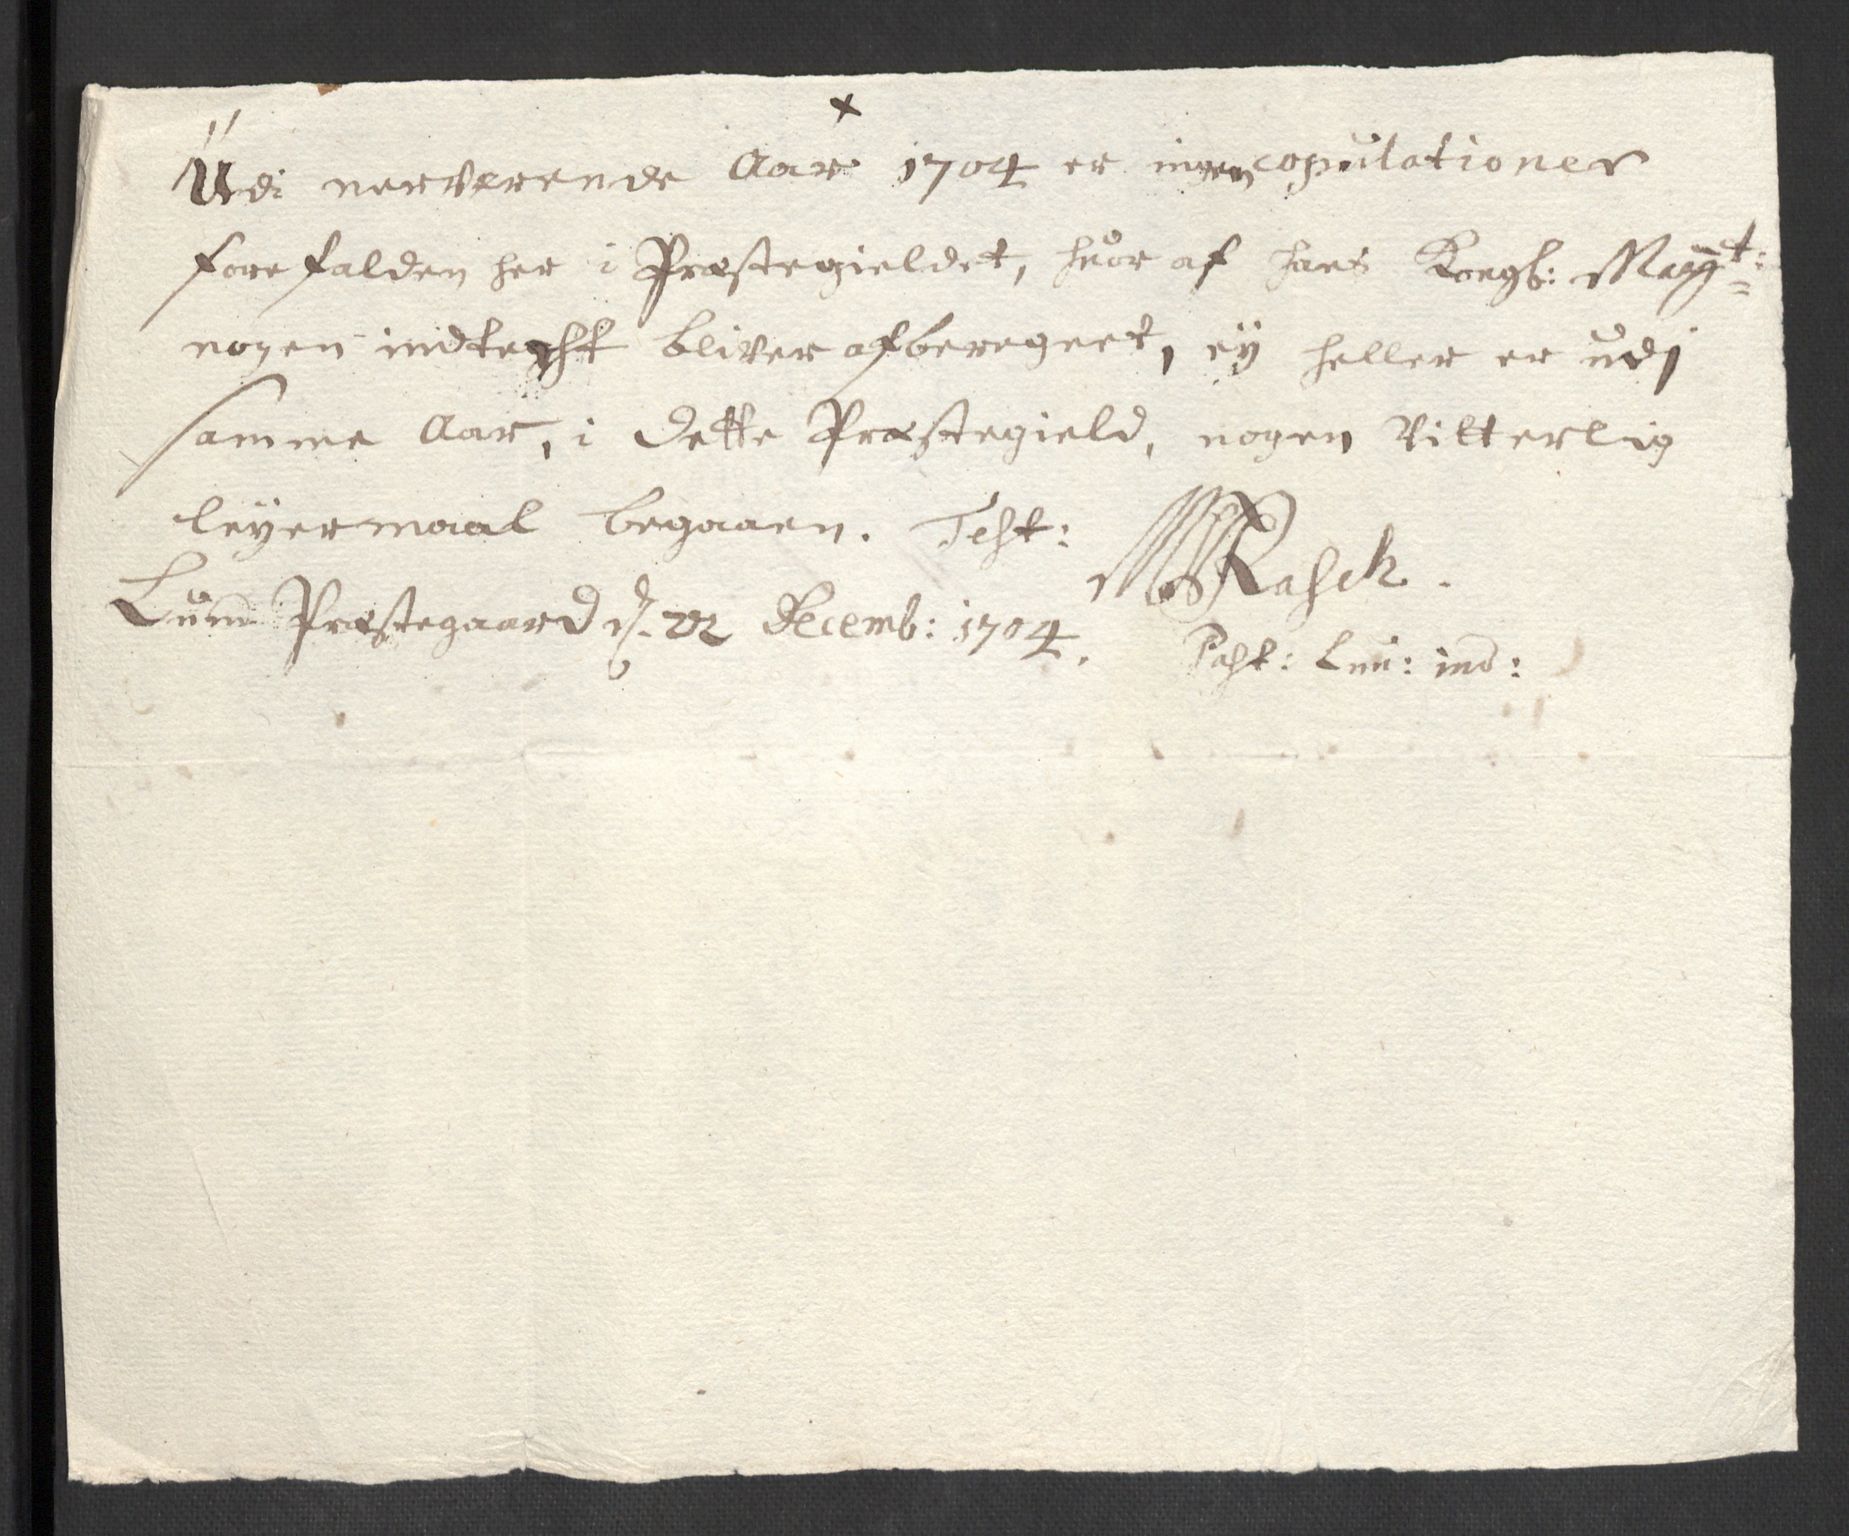 x
Udi nerverende Aar 1704 er ingen copulationer
forefalden her i Præstegieldet, huor af hans Kongl: Mayt:
nogen indtegst bliver afberegnet, ey heller er udj
samme Aar, i dette Præstegield, nogen Vitterlig
leyermaal begaaen. Test:
MRasch.
Lund Præstegaard d. 22 Decemb: 1704.
Past: Lun: ind: